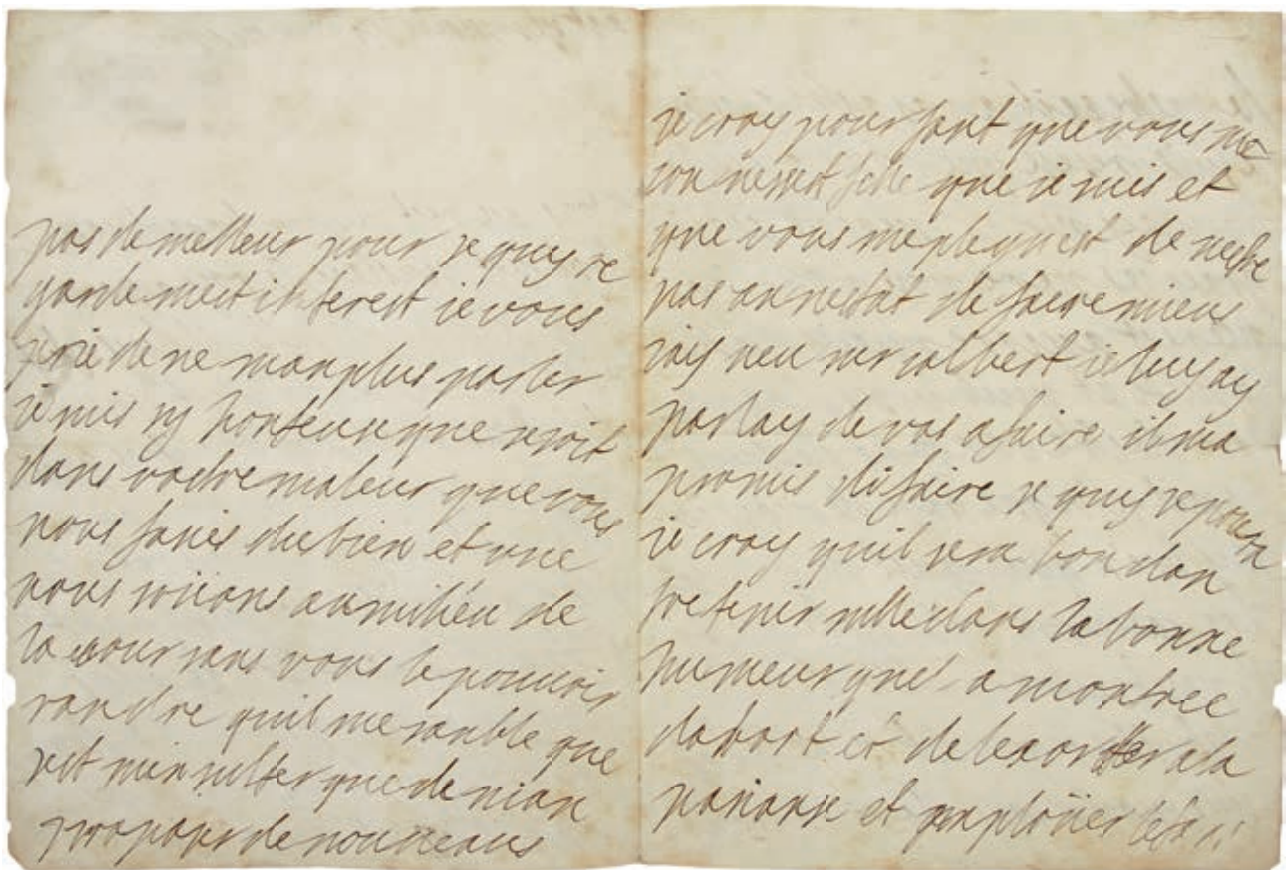 pas de melleur pour se quy re
garde mest interest ie vous
prie de ne man plus parler
ie suis sy honteuse que se soit
dans vostre maleur que vous
nous faites du bien et que
nous soiions au milieu de
la cour sans vous le pouvoir
randre quil me samble que
set minsulter que de mian
proposer de nouveaus
ie croy pourtant que vous me
connessest telle que ie suis et
que vous me pleignest de nestre
pas an nestat de faire mieus
iay veu mr colbert ie luy ay
parlay de vos afaire il ma
promis di faire se quy se poura
ie croy quil sera bon dan
tretenir mlle dans la bonne
humeur quel a montree
dabort et de lexorter a la
pasianse et amploiier